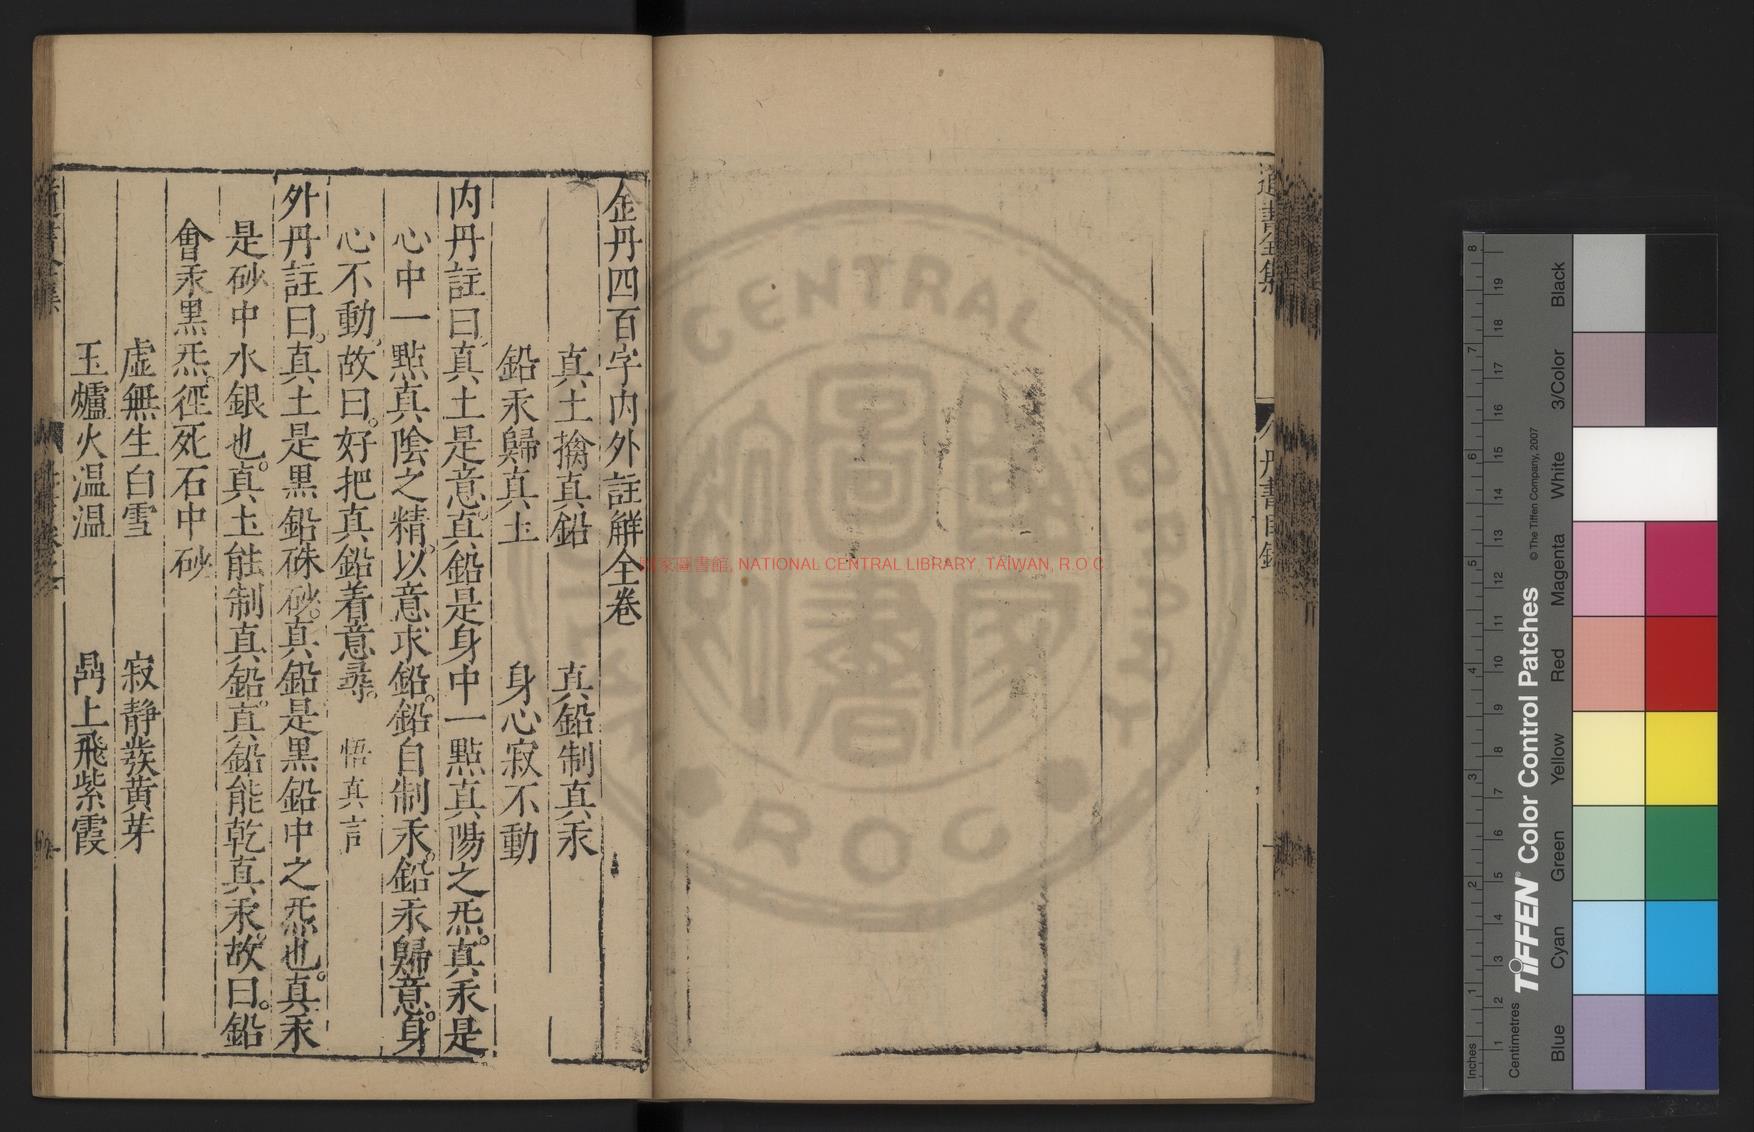 金丹四百字内外註觧全卷
真土擒真鉛　真鉛制真汞
鉛汞歸真土　身心寂不動
内丹註曰真土是意真鉛是身中一點真陽之炁真汞是
心中一點真陰之精以意求鉛鉛自制汞鉛汞歸意身
心不動故曰好把真鉛着意尋　悟真言
外丹註曰真土是黒鉛硃砂真鉛是黒鉛中之炁也真汞
是砂中水銀也真土能制真鉛真鉛能乾真汞故曰鉛
會汞黒炁徑死石中砂
虚無生白雪　寂静發黄芽
玉爐火温温　鼎上飛紫霞
國家圖書館, NATIONAL CENTRAL LIBRARY, TAIWAN, R.O.C
CENTRAL LIBRARY
ROC
國家圖書
TIFFEN® Color Control Patches
© The Tiffen Company, 2007
Inches
Centimetres
Blue
Cyan
Green
Yellow
Red
Magenta
White
3/Color
Black